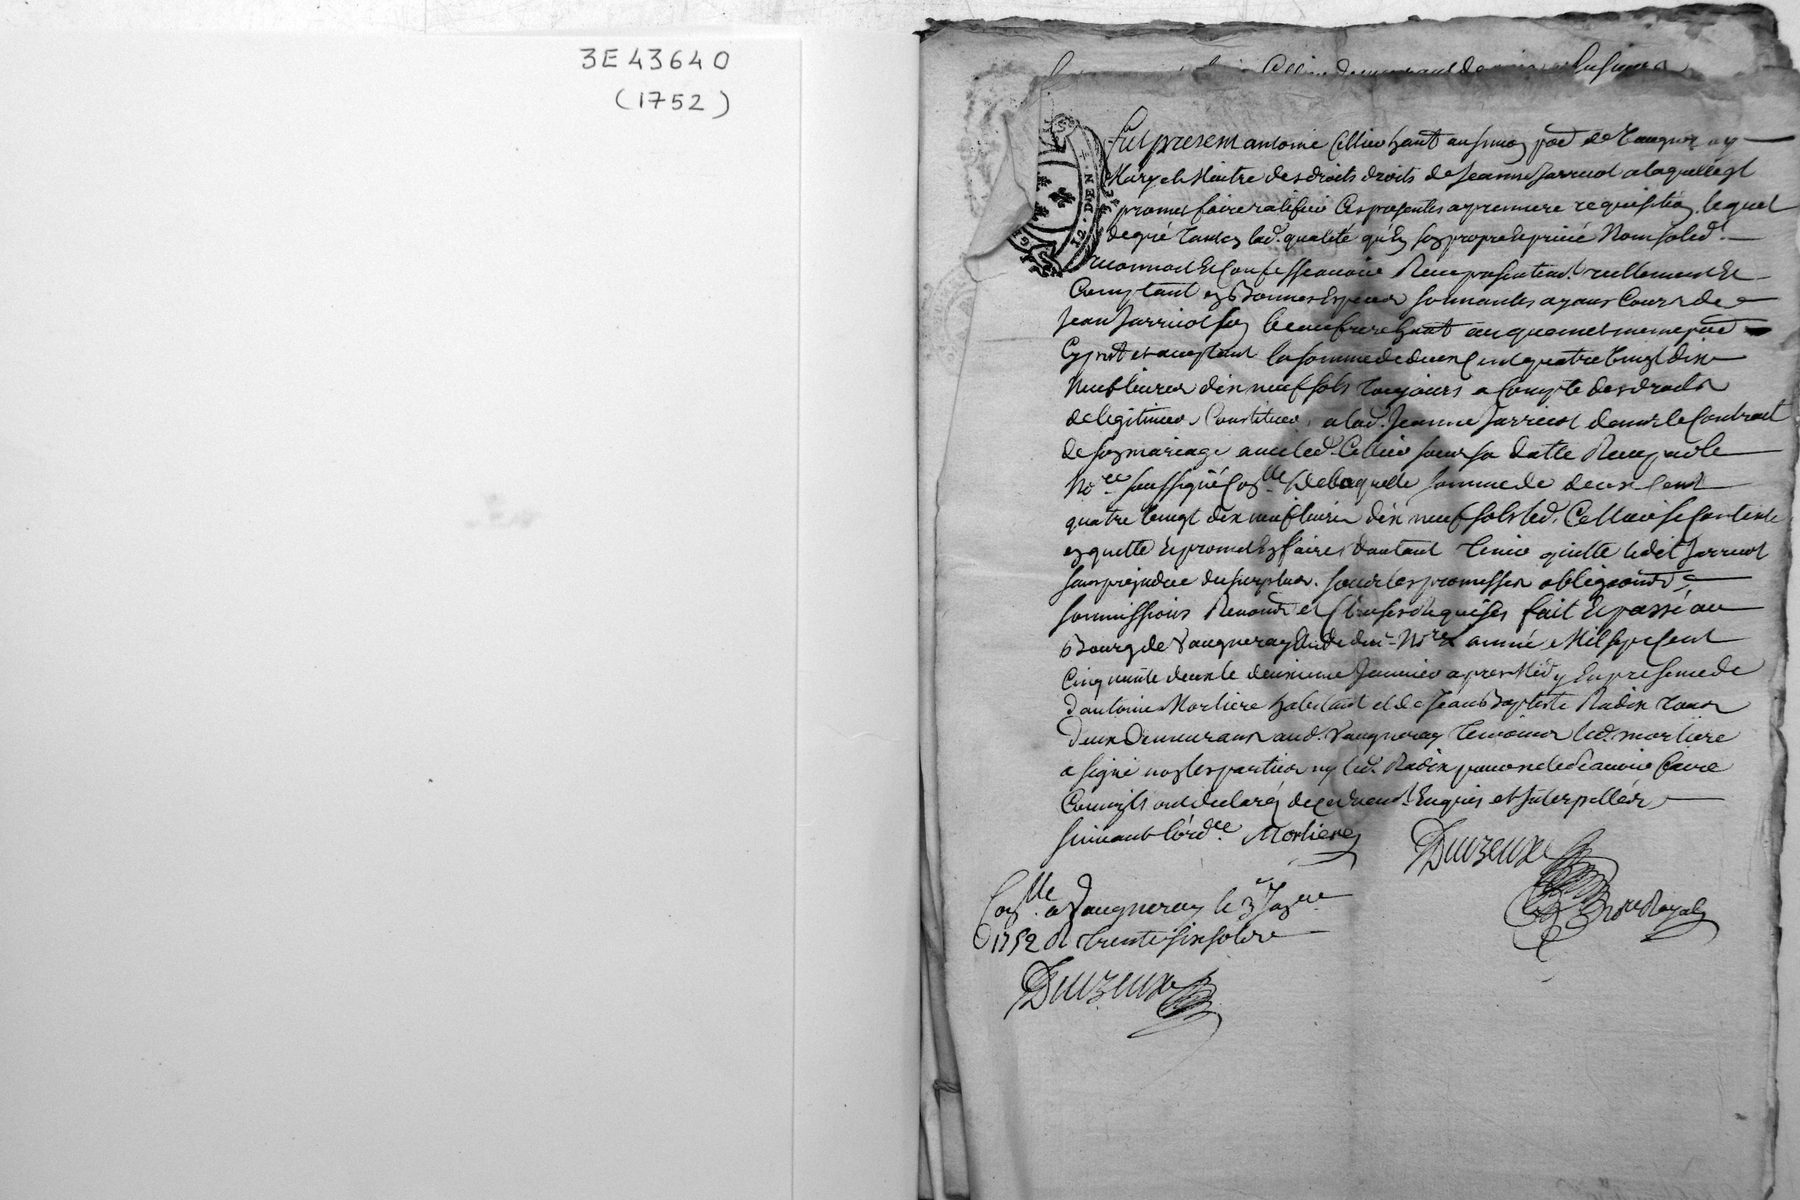 3E43640
(1752)
Fut present antoine Cellier hant au simon psse de Vaugneray
Mary et Maitre des droits de Jeanne Jarricot a laquelle il
promet faire ratifier Ces presentes a premiere requisition lequel
de gré tant en lad. qualité qu'en son propre et privé Nom sold.
reconnoit et Confesse avoir Receu presentement reellement Et
Comptant en Bonnes Especes sonnantes ayans Cours de
Jean Jarricot son beaufrere hant au meme psse
Cy prnt et acceptant la somme de deux Cent quatre vingt dix
Neuf livres dix neuf sols toujours a Compte des droits
de legitimes Constitués a lad. Jeanne Jarricot dans le Contract
de son mariage avec led. Cellier sous sa datte Receu par le
Nore soussigné Conllé de laquelle somme de deux Cent
quatre vingt dix neuf livres dix neuf sols led. Cellier se Contente
en quitte et promet en faire d'autant tenir quitte ledit Jarricot
sans prejudice du surplus. sous les promesses obligeons
soumissions Renons et Clauses Requises fait et passé au
Bourg de Vaugneray Etude dud. Nore année Mil sept Cent
Cinquante deux le deuxieme Janvier apres Midy En presence de
d'antoine Morliere habitant et de Jean Baptiste Radix tous
deux Demeurans aud. Vaugneray temoins led. morliere
a signé non les parties ny led. Radix pour ne le sçavoir faire
Comm'ils ont declaré de ce Enquis et Interpellés
suivant l'ordce Morliere
Duizeux
Nore Royal
Conllé a Vaugneray le 3e Janer
1752 R trente six sols
Duizeux